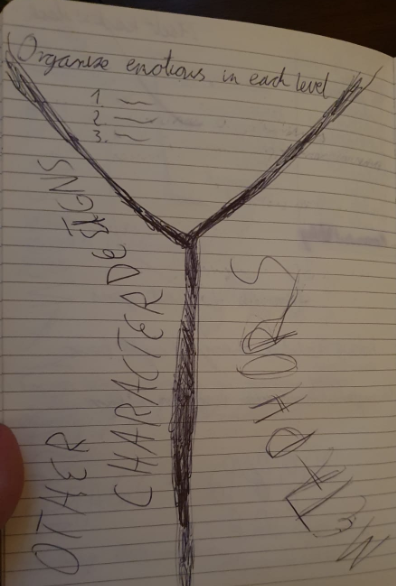 Organize emotions in each level
1
2
3.
OTHER
CHARACTER DESIGNS
METAPHORS